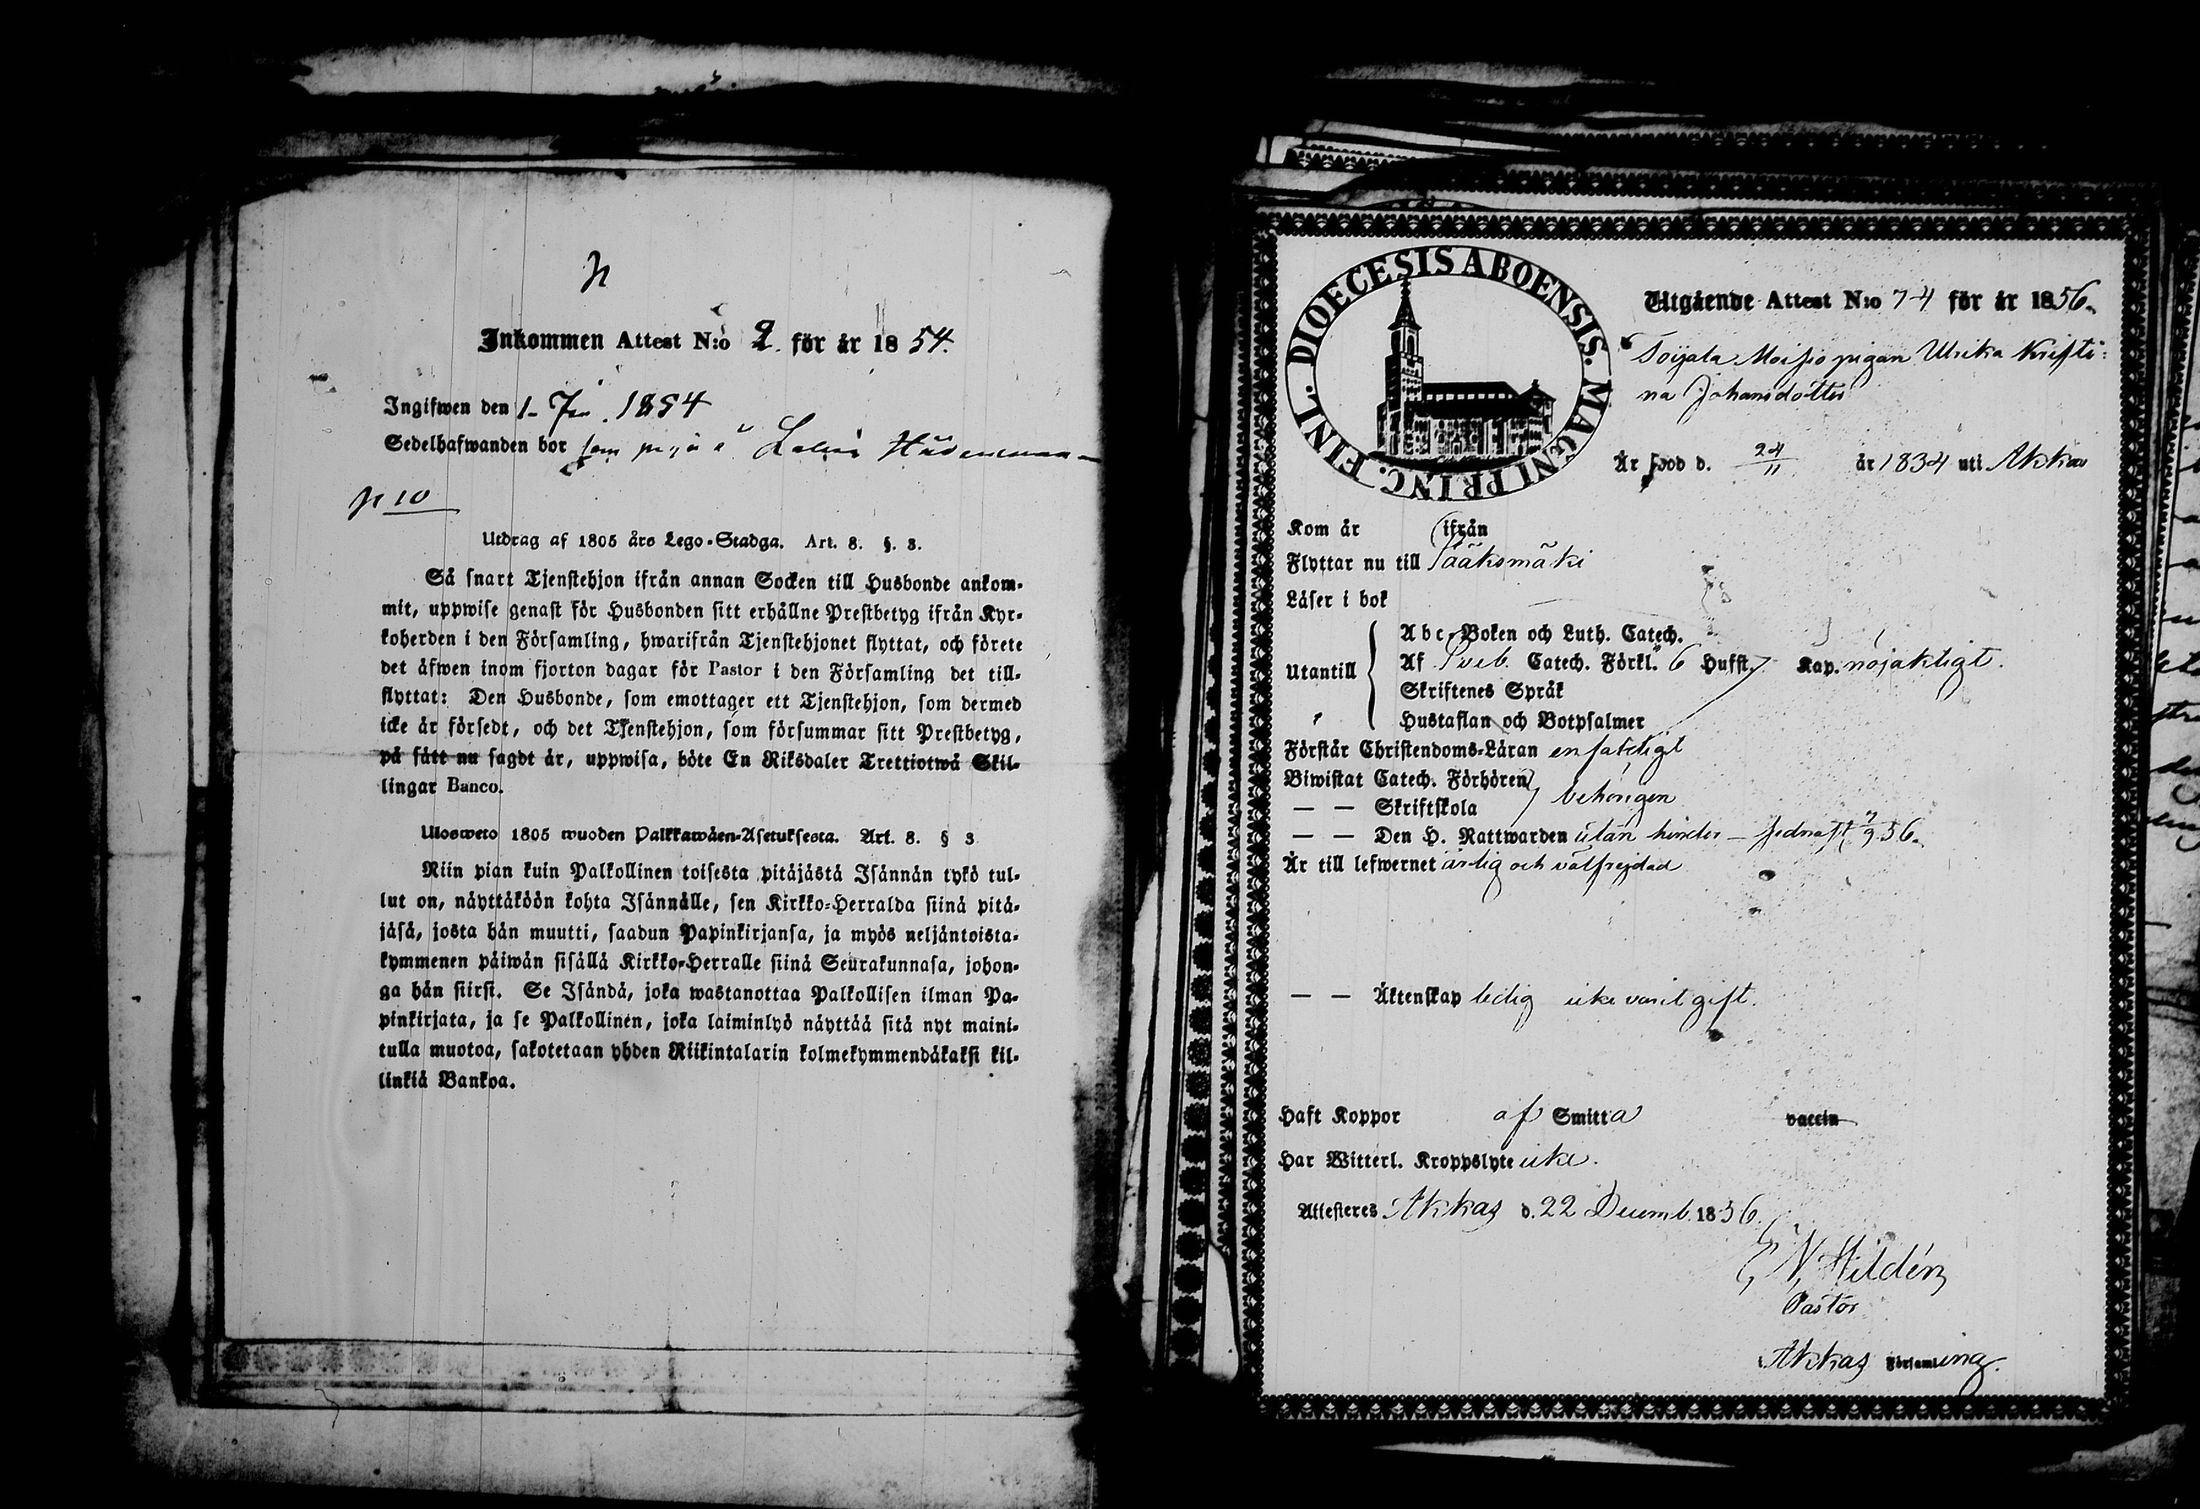 Inkommen Attest N:o 2. för år 1854.
Ingifwen den 1 1854
Sedelhafwanden bor som piga å
p 10
Utdrag af 1805 års Lego-Stadga. Art. 8. §. 3.
Så snart Tjenstehjon ifrån annan Socken till Husbonde ankom-
mit, uppwise genast för Husbonden sitt erhållne Prestbetyg ifrån Kyr-
koherden i den Församling, hwarifrån Tjenstehjonet flyttat, och förete
det äfwen inom fjorton dagar för Pastor i den Församling det till-
flyttat: Den Husbonde, som emottager ett Tjenstehjon, som dermed
icke är försedt, och det Tjenstehjon, som försummar sitt Prestbetyg,
på sätt nu sagdt är, uppwisa, böte En Riksdaler Trettiotwå Skil-
lingar Banco.
Ulosweto 1805 wuoden Palkkawäen-Asetuksesta. Art. 8. § 3
Niin pian kuin Palkollinen toisesta pitäjästä Isännän tykö tul-
lut on, näyttäköön kohta Isännälle, sen Kirkko-Herralda siinä pitä-
jäsä, josta hän muutti, saadun Papinkirjansa, ja myös neljäntoista-
kymmenen päiwän sisällä Kirkko-Herralle siinä Seurakunnasa, johon-
ga hän siirsi. Se Isändä, joka wastanottaa Palkollisen ilman Pa-
pinkirjata, ja se Palkollinen, joka laiminlyö näyttää sitä nyt maini-
tulla muotoa, sakotetaan yhden Riikintalarin kolmekymmendäkaksi kil-
linkiä Bankoa.
DIOECESIS ABOENSIS. MAGNI PRINC. FINL.
Utgående Attest N:o 74 för år 1856.
Toijala Moisio pigan Ulrika Kristi-
na Johansdotter
Är född d. 24/11 år 1834 uti Akkas
Kom år ifrån
Flyttar nu till Sääksmäki
Läser i bok
Utantill
Abc-Boken och Luth. Catech.
Af Sveb. Catech. Förkl. 6 Hufst. Kap. nöjaktigt.
Skriftenes Språk
Hustaflan och Botpsalmer
Förstår Christendoms-Läran enfaldigt
Biwistat Catech. Förhören behörigen
— — Skriftskola
— — Den H. Nattwarden utan hinder – sednast 7/9 56.
Är till lefwernet ärlig och välfrejdad
— — Äktenskap ledig icke varit gift.
Haft Koppor af Smitta vaccin
Har Witterl. Kroppslyte icke.
Attesteres Akkas d. 22 Decemb. 1856.
E N Hildén
Pastor
Akkas Församling.